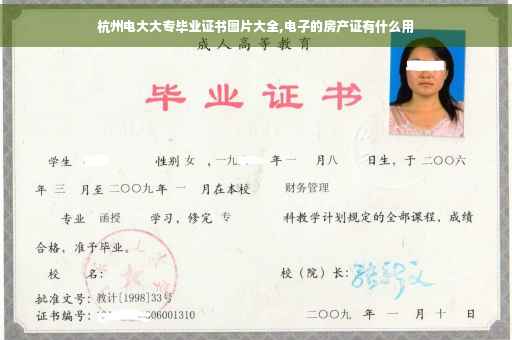 杭州电大大专毕业证书图片大全,电子的房产证有什么用
成人高等教育
毕业证书
学生 性别 女 ,一九 年一 月八 日生,于二〇〇六
年 三 月至二〇〇九年 一 月在本校 财务管理
专业 函授 学习,修完 专 科教学计划规定的全部课程,成绩
合格,准予毕业。
校 名: 校(院)长:
批准文号:教计[1998]33号
证书编号: 06001310 二〇〇九 年 一 月 十 日